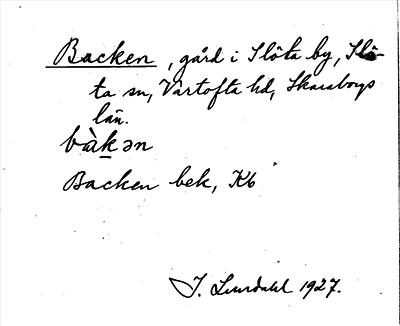 Backen, gård i Slöta by, Slö-
ta sn, Vartofta hd, Skaraborgs
län.
bàkən
Backen bek, Kb
J. 1927.